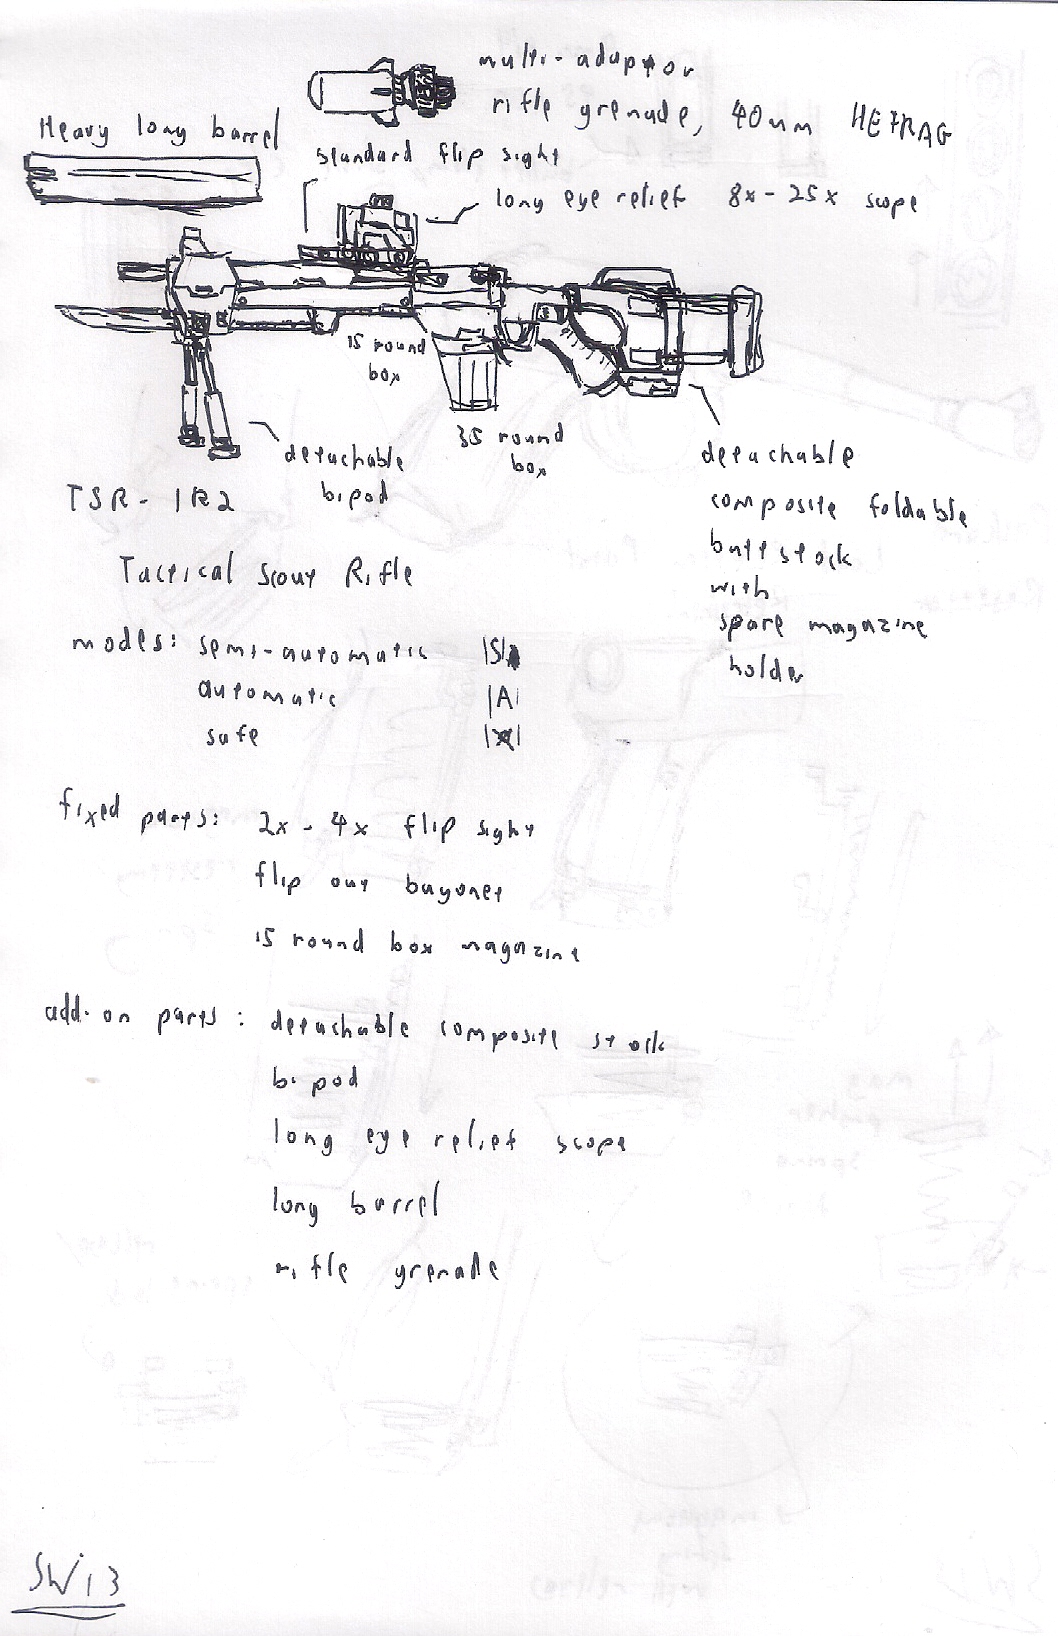 multi-adaptor
rifle grenade, 40mm HEFRAG
Heavy long barrel
standard flip sight
long eye relief 8x-25x scope
15 round
box
35 round
box
detachable
bipod
detachable
composite foldable
buttstock
with
spare magazine
holder
TSR-1R2
Tactical Scout Rifle
modes: semi-automatic |S|
automatic |A|
safe |X|
fixed parts: 2x-4x flip sight
flip out bayonet
15 round box magazine
add-on parts: detachable composite stock
bipod
long eye relief scope
long barrel
rifle grenade
SW13